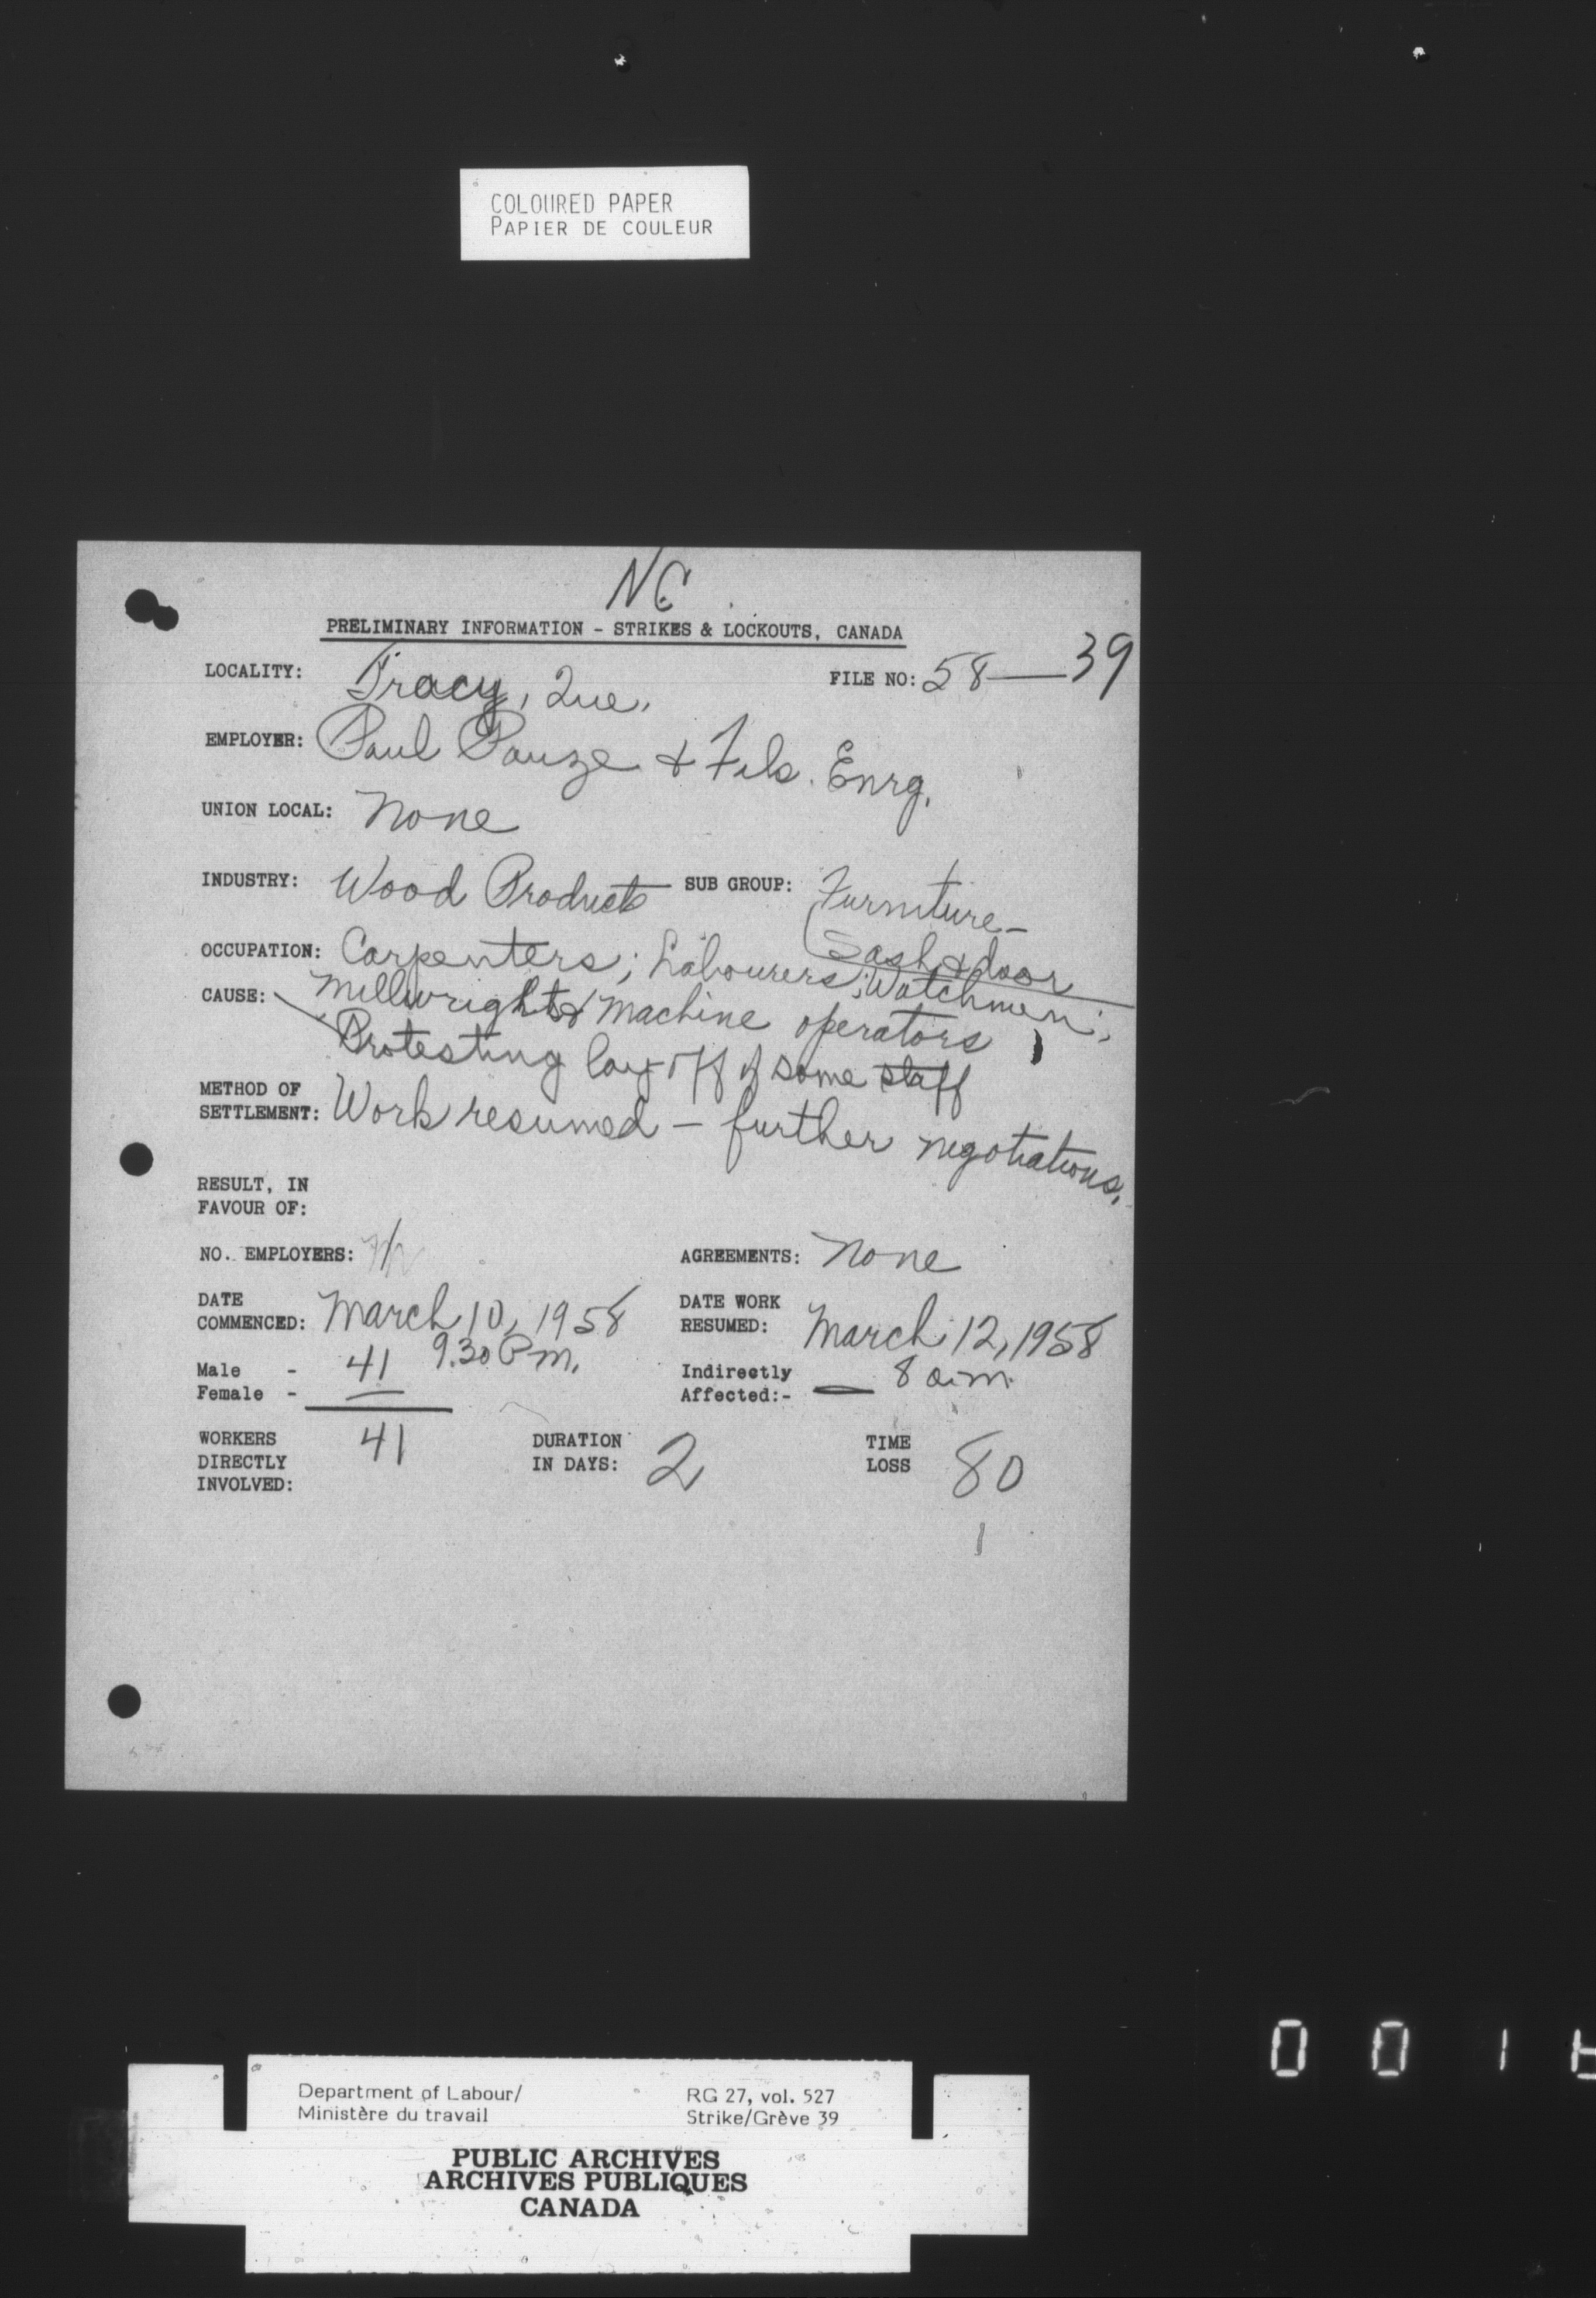 COLOURED PAPER
PAPIER DE COULEUR
NC
PRELIMINARY INFORMATION - STRIKES & LOCKOUTS, CANADA
LOCALITY: Tracy, Que. FILE NO: 58—39
EMPLOYER: Paul Pauze & Fils. Enrg.
UNION LOCAL: None
INDUSTRY: Wood Products SUB GROUP: Furniture-
Sash & door
OCCUPATION: Carpenters; Labourers; Watchmen;
Millwrights & Machine operators
CAUSE: Protesting lay-off of some staff
METHOD OF
SETTLEMENT: Work resumed - further negotiations.
RESULT, IN
FAVOUR OF:
NO. EMPLOYERS: AGREEMENTS: None
DATE
COMMENCED: March 10, 1958
9.30 P.m.
DATE WORK
RESUMED: March 12, 1958
8 a.m.
Male - 41
Female - —
Indirectly
Affected:- —
WORKERS
DIRECTLY
INVOLVED: 41
DURATION
IN DAYS: 2
TIME
LOSS 80
Department of Labour/
Ministère du travail
RG 27, vol. 527
Strike/Grève 39
PUBLIC ARCHIVES
ARCHIVES PUBLIQUES
CANADA
0 0 1